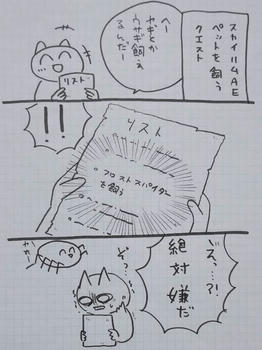 スカイリムAE
ペットを飼う
クエスト
へー
ヤギとか
ウサギ飼え
るんだー
リスト
!!
リスト
フロストスパイダー
を飼う
絶対嫌だ